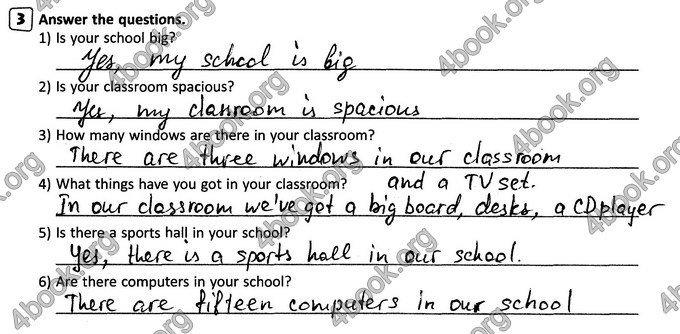 3 Answer the questions.
1) Is your school big?
Yes, my school is big
2) Is your classroom spacious?
Yes, my classroom is spacious
3) How many windows are there in your classroom?
There are three windows in our classroom
4) What things have you got in your classroom? and a TV set.
In our classroom we've got a big board, desks, a CD player
5) Is there a sports hall in your school?
Yes, there is a sports hall in our school.
6) Are there computers in your school?
There are fifteen computers in our school
4book.org
4book.org
4book.org
4book.org
4book.org
4book.org
4book.org
4book.org